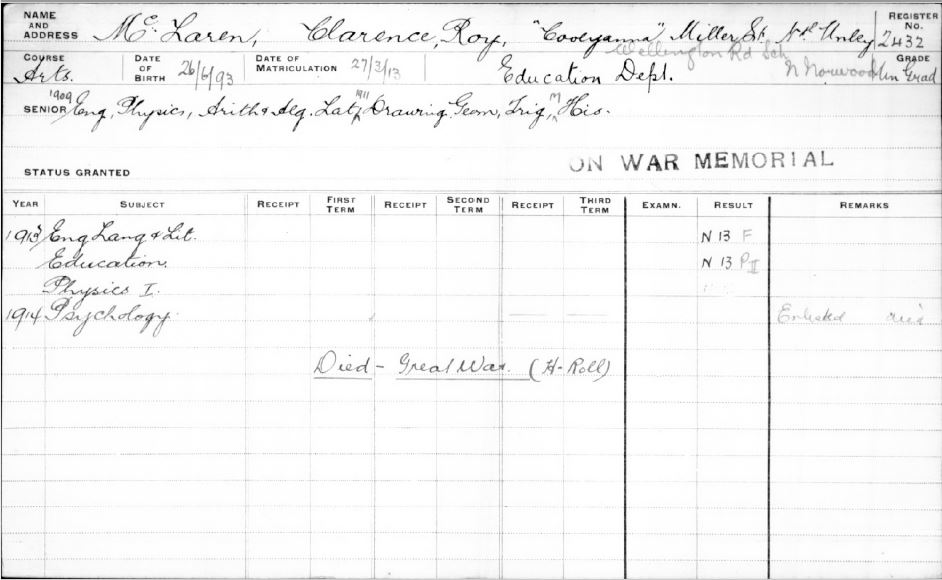 NAME AND ADDRESS Mc Laren, Clarence, Roy, "Cooeyanna" Miller St. Nth Unley REGISTER No. 2432
Wellington Rd Sch
N Norwood
COURSE Arts. DATE OF BIRTH 26/6/93 DATE OF MATRICULATION 27/3/13 Education Dept. GRADE Un Grad
SENIOR 1909 Eng, Physics, Arith & Alg. Lat, 1911 Drawing Geom, Trig, M His.
ON WAR MEMORIAL
STATUS GRANTED
YEAR SUBJECT RECEIPT FIRST TERM RECEIPT SECOND TERM RECEIPT THIRD TERM EXAMN. RESULT REMARKS
1913 Eng Lang & Lit. N 13 F
Education. N 13 PII
Physics I.
1914 Psychology. Enlisted died
Died - Great War. (H-Roll)